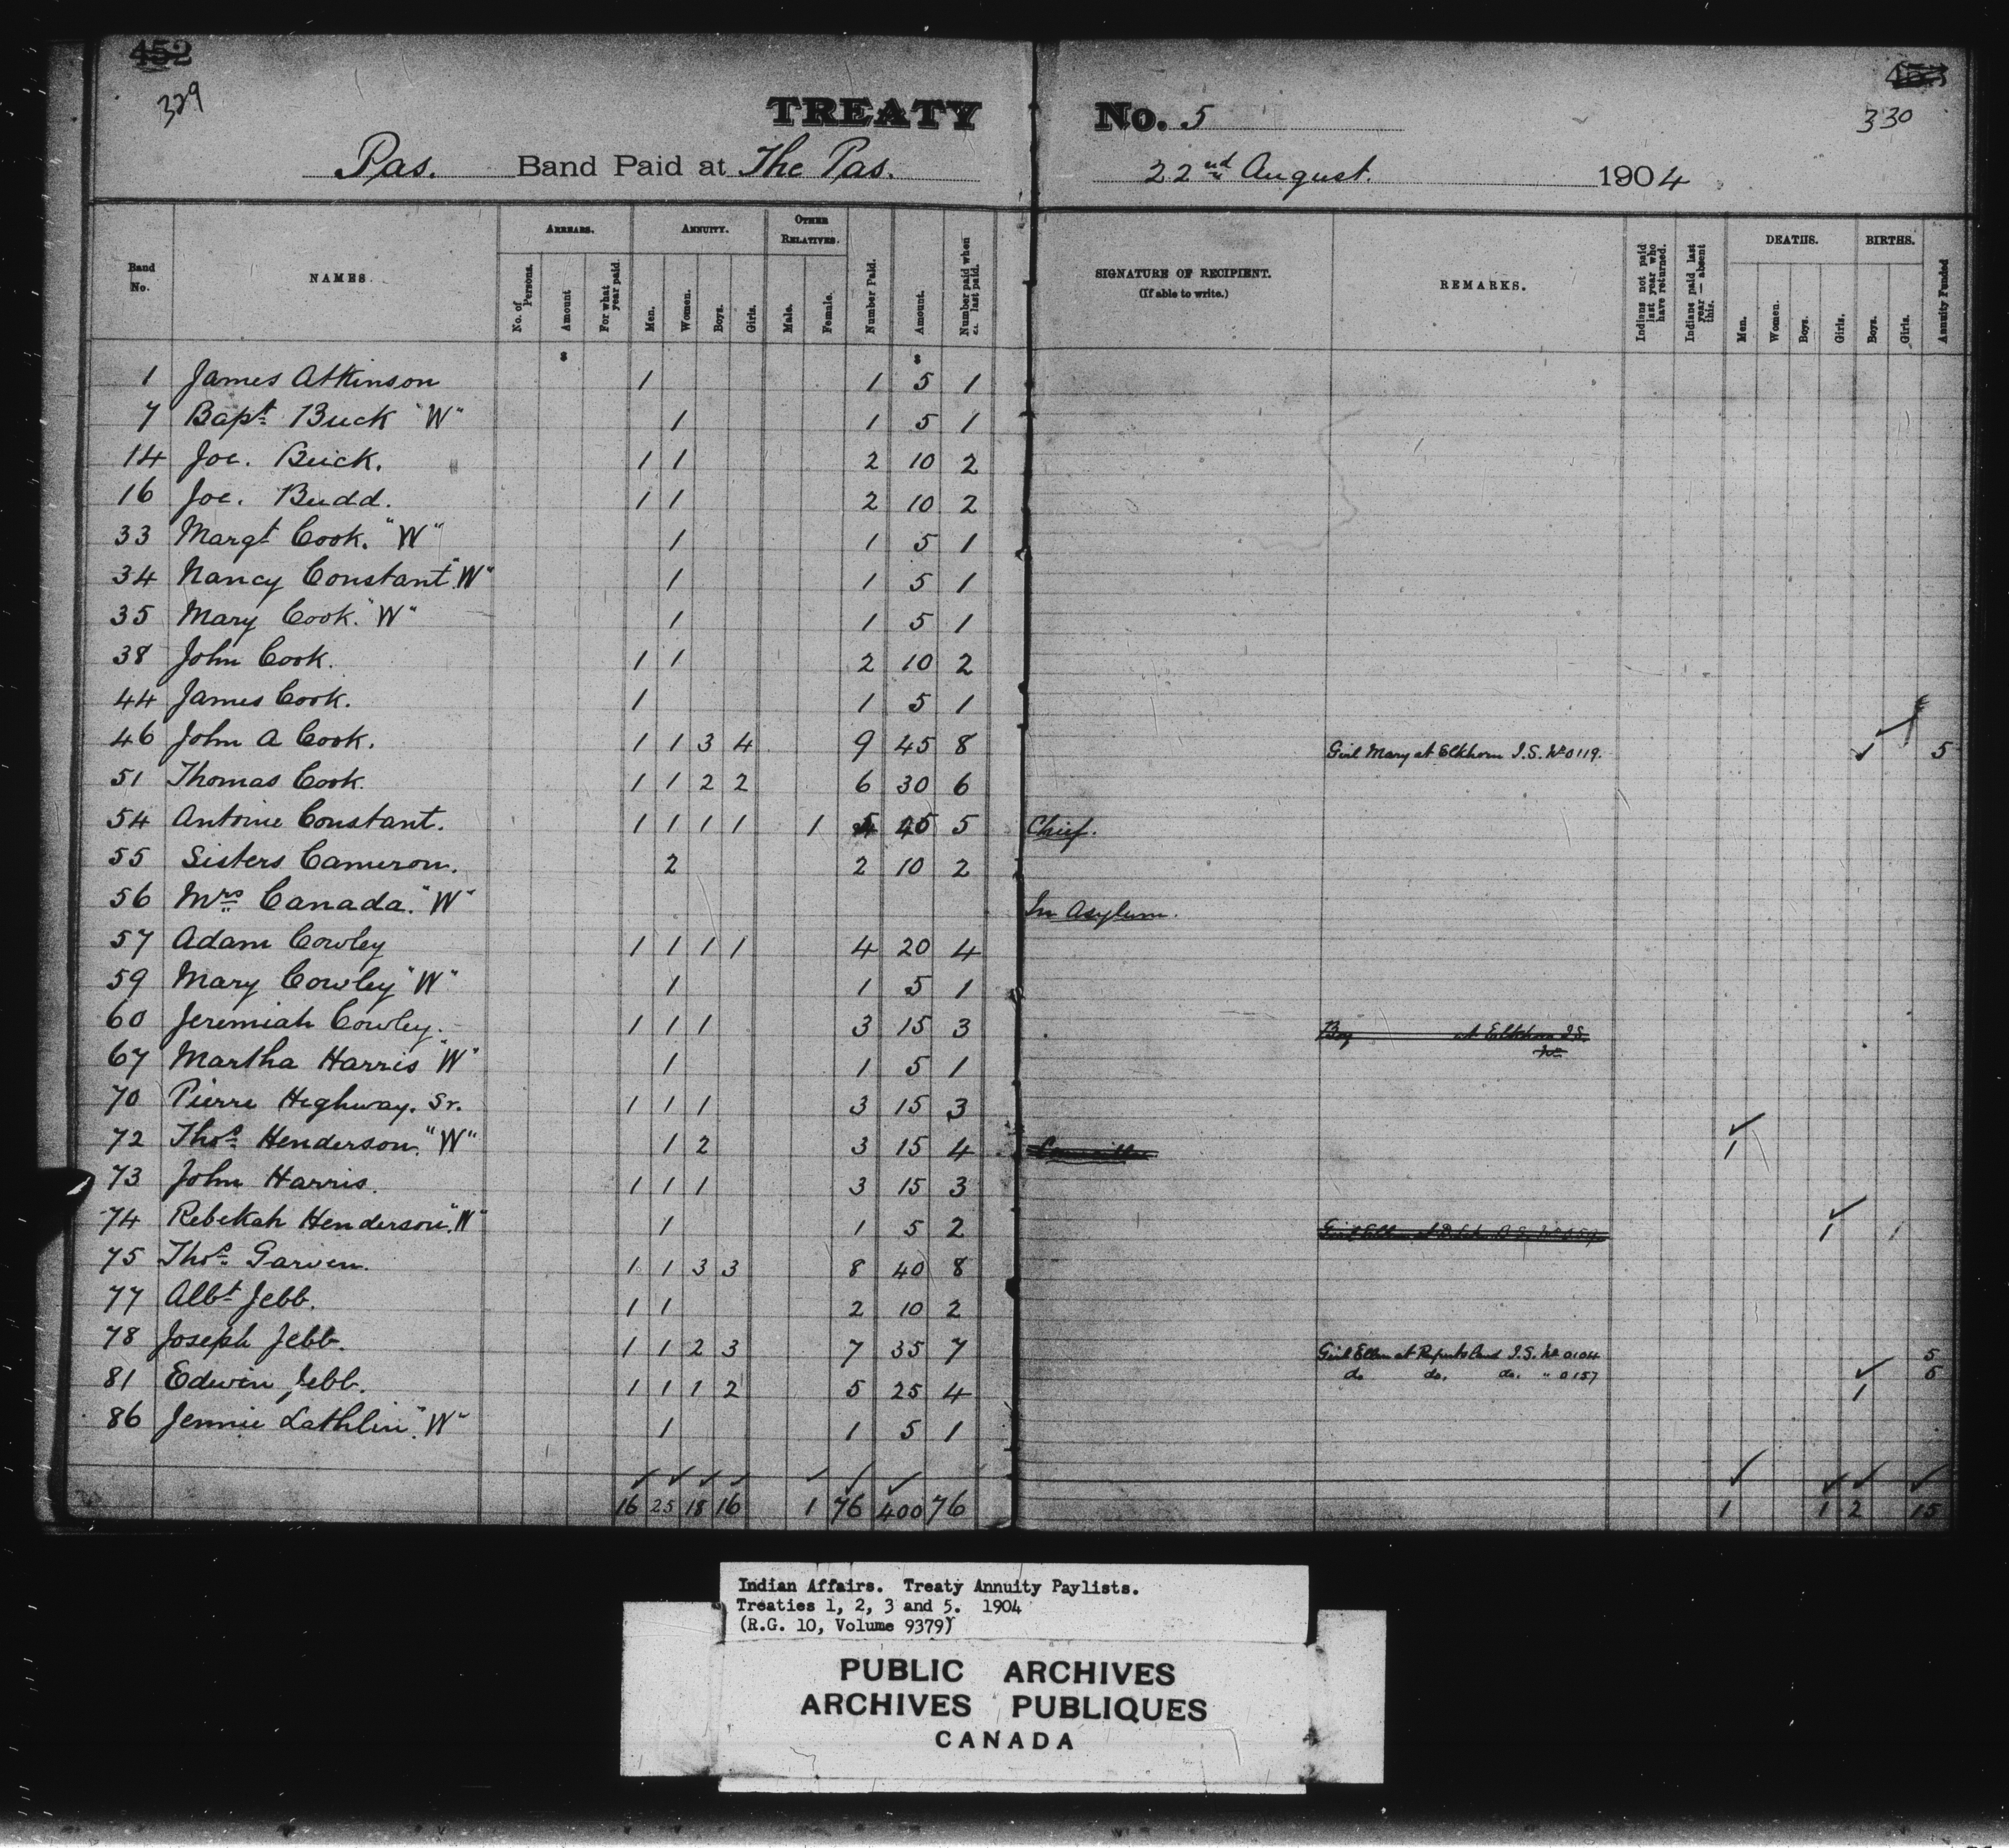 452
329
TREATY No. 5
330
Pas. Band Paid at The Pas. 22nd August. 1904
Band No. NAMES. ARREARS. No. of Persons. Amount For what year paid. ANNUITY. Men. Women. Boys. Girls. OTHER RELATIVES. Male. Female. Number Paid. Amount. Number paid when last paid. SIGNATURE OF RECIPIENT. (If able to write.) REMARKS. Indians not paid last year who have returned. Indians paid last year — absent this. DEATHS. Men. Women. Boys. Girls. BIRTHS. Boys. Girls. Annuity Funded
$ $
1 James Atkinson 1 1 5 1
7 Bapt. Buck "W" 1 1 5 1
14 Joe. Buck. 1 1 2 10 2
16 Joe. Budd. 1 1 2 10 2
33 Margt Cook. "W" 1 1 5 1
34 Nancy Constant "W" 1 1 5 1
35 Mary Cook. "W" 1 1 5 1
38 John Cook. 1 1 2 10 2
44 James Cook. 1 1 5 1
46 John A Cook. 1 1 3 4 9 45 8 Girl Mary at Elkhorn I.S. No 0119. ✓ 5
51 Thomas Cook. 1 1 2 2 6 30 6
54 Antoine Constant. 1 1 1 1 1 5 45 5 Chief.
55 Sisters Cameron. 2 2 10 2
56 Mrs Canada. "W" In Asylum.
57 Adam Cowley 1 1 1 1 4 20 4
59 Mary Cowley "W" 1 1 5 1
60 Jeremiah Cowley. 1 1 1 3 15 3 Boy at Elkhorn I.S.
No
67 Martha Harris "W" 1 1 5 1
70 Pierre Highway. Sr. 1 1 1 3 15 3
72 Thos. Henderson. "W" 1 2 3 15 4 ✓ 1
73 John Harris. 1 1 1 3 15 3
74 Rebekah Henderson. "W" 1 1 5 2 ✓ 1
75 Thos. Garven. 1 1 3 3 8 40 8
77 Albt Jebb. 1 1 2 10 2
78 Joseph Jebb. 1 1 2 3 7 35 7 Girl Ellen at Ruperts Land I.S. No 0104 5
do do. do. " 0157 5
81 Edwin Jebb. 1 1 1 2 5 25 4 ✓ 1
86 Jennie Lathlin "W" 1 1 5 1
16 25 18 16 1 76 400 76 1 1 2 15
Indian Affairs. Treaty Annuity Paylists.
Treaties 1, 2, 3 and 5. 1904
(R.G. 10, Volume 9379)
PUBLIC ARCHIVES
ARCHIVES PUBLIQUES
CANADA